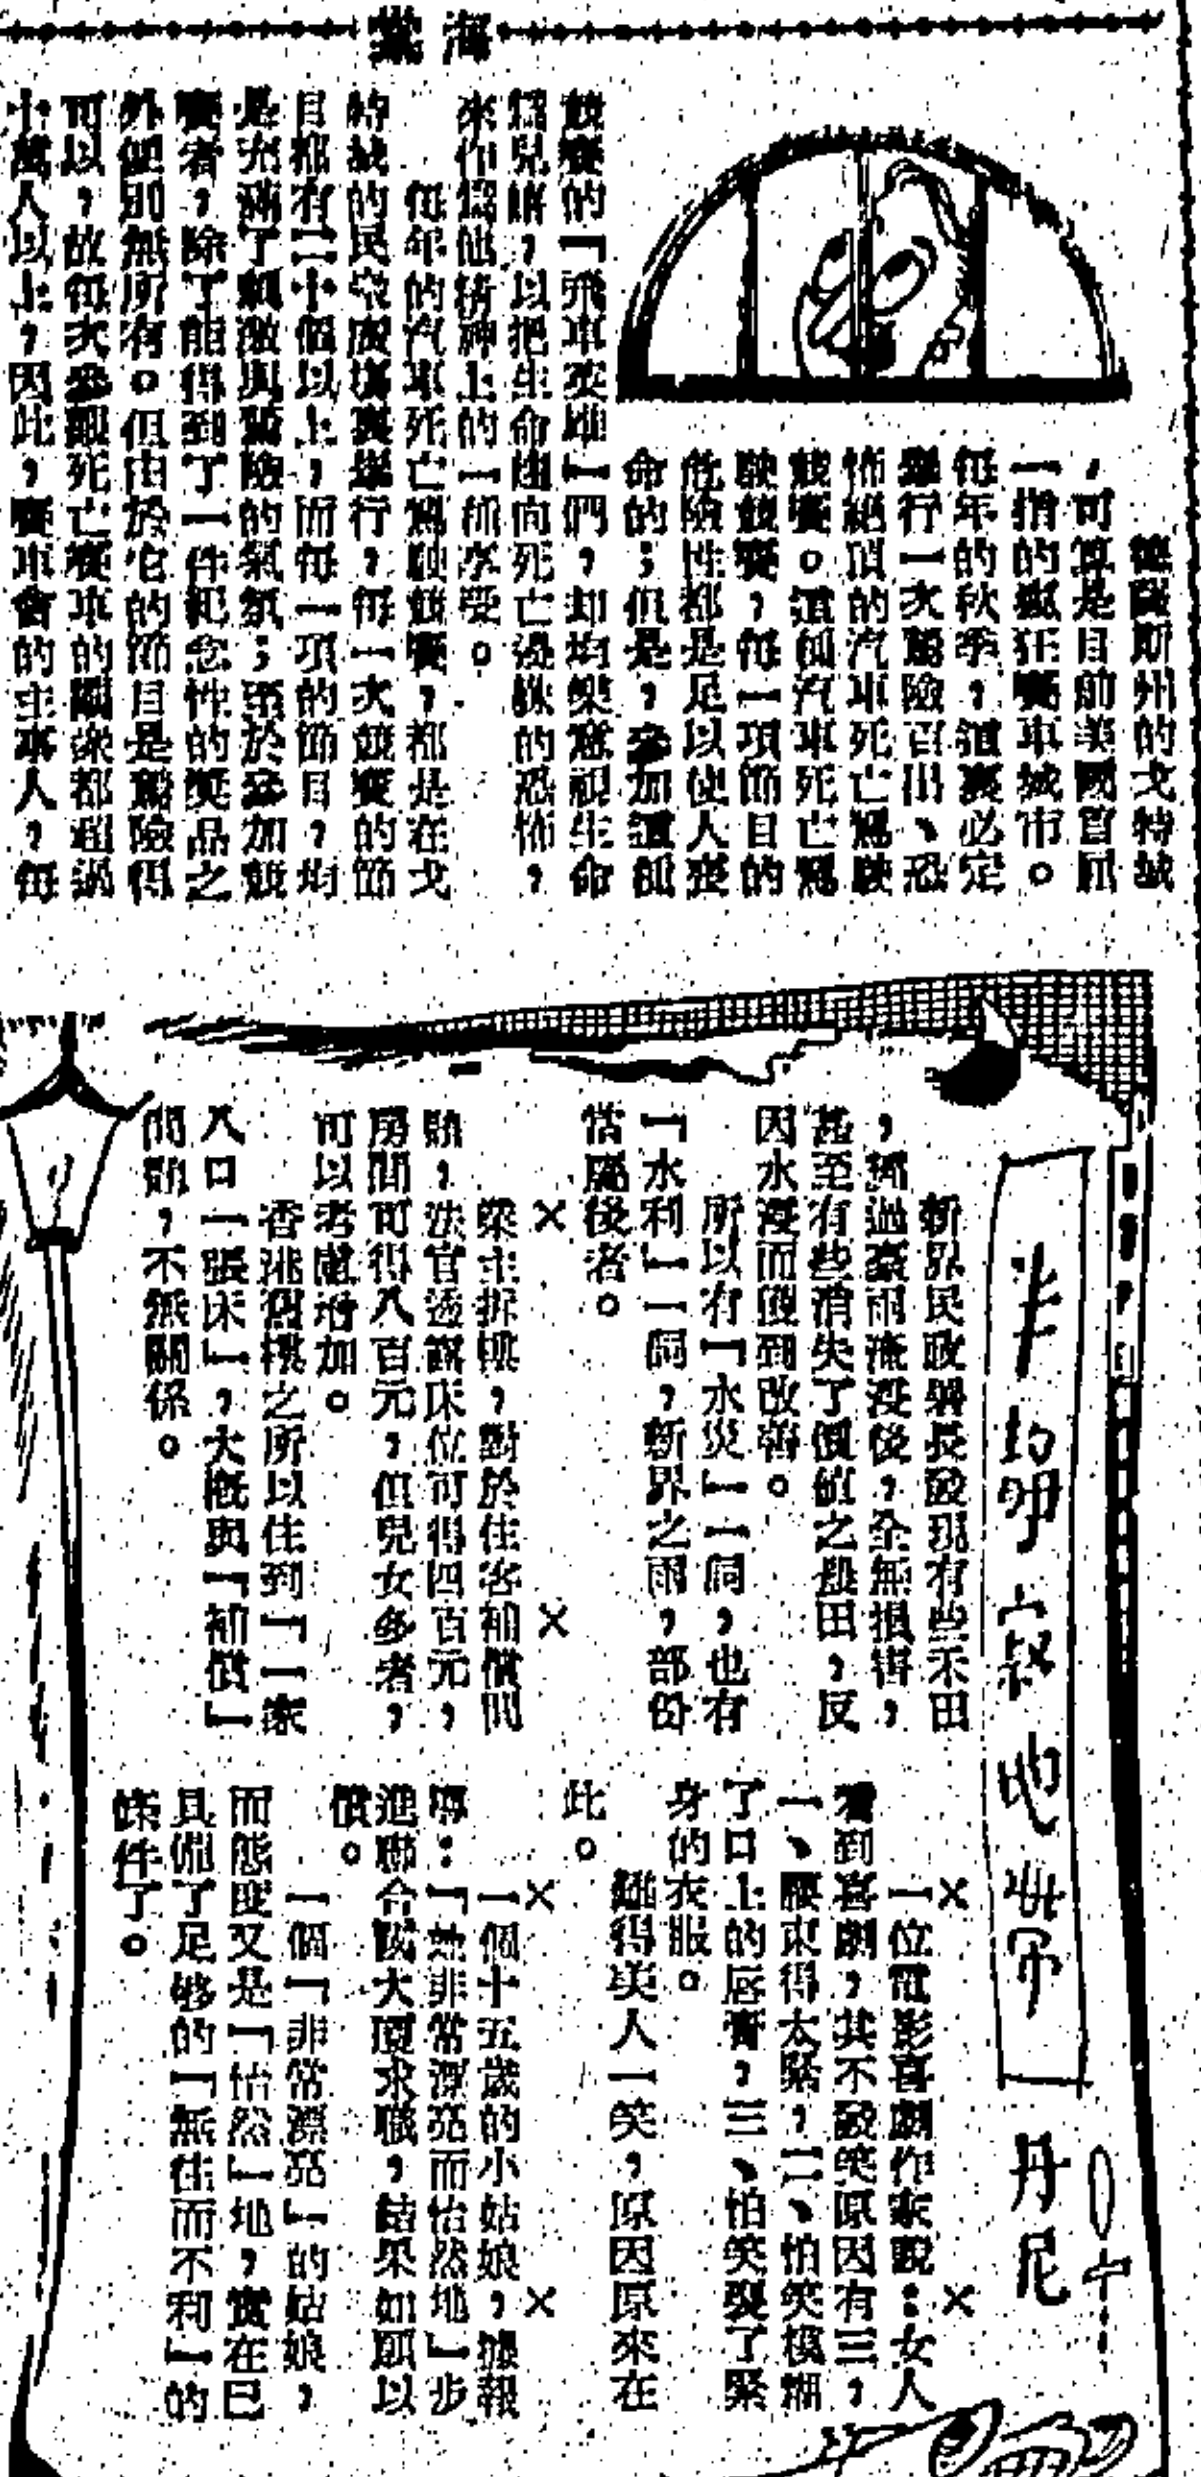 海棠
德薩斯州的戈特城
,可算是目前美國首屈
一指的瘋狂賽車城市。
每年的秋季,這裏必定
舉行一次驚險百出、恐
怖絕頂的汽車死亡駕駛
競賽。這個汽車死亡駕
駛競賽,每一項節目的
危險性都是足以使人喪
命的;但是,參加這種
競賽的「飛車英雄」們,却均樂意視生命
爲兒嬉,以把生命踏向死亡邊緣的恐怖,
來作爲他精神上的一種享受。
每年的汽車死亡駕駛競賽,都是在戈
特城的民衆廣塲裏舉行,每一次競賽的節
目都有二十個以上,而每一項的節目,均
是充滿了刺激與驚險的氣氛;至於參加競
賽者,除了能得到了一件紀念性的獎品之
外便別無所有。但由於它的節目是驚險得
可以,故每次參觀死亡賽車的觀衆都超過
十萬人以上,因此,賽車會的主事人,每
半均
丹尼
新界民政署長說現有些禾田
,經過豪雨淹沒後,全無損害,
甚至有些消失了價值之農田,反
因水浸而獲到改善。
所以有「水災」一詞,也有
「水利」一詞,新界之雨,部份
當屬後者。
× ×
業主拆樓,對於住客補償問
題,法官透露床位可得四百元,
房間可得八百元,但兒女多者,
可以考慮增加。
香港舊樓之所以住到「一家
八口一張床」,大概與「補償」
問題,不無關係。
× ×
一位電影喜劇作家說:女人
看到喜劇,其不敢笑原因有三,
一、腰束得太緊,二、怕笑模糊
了口上的唇膏,三、怕笑裂了緊
身的衣服。
難得美人一笑,原因原來在
此。
× ×
一個十五歲的小姑娘,據報
導:「她非常漂亮而怡然地」步
進聯合國大廈求職,結果如願以
償。
一個「非常漂亮」的姑娘,
而態度又是「怡然」地,實在已
具備了足够的「無往而不利」的
條件了。